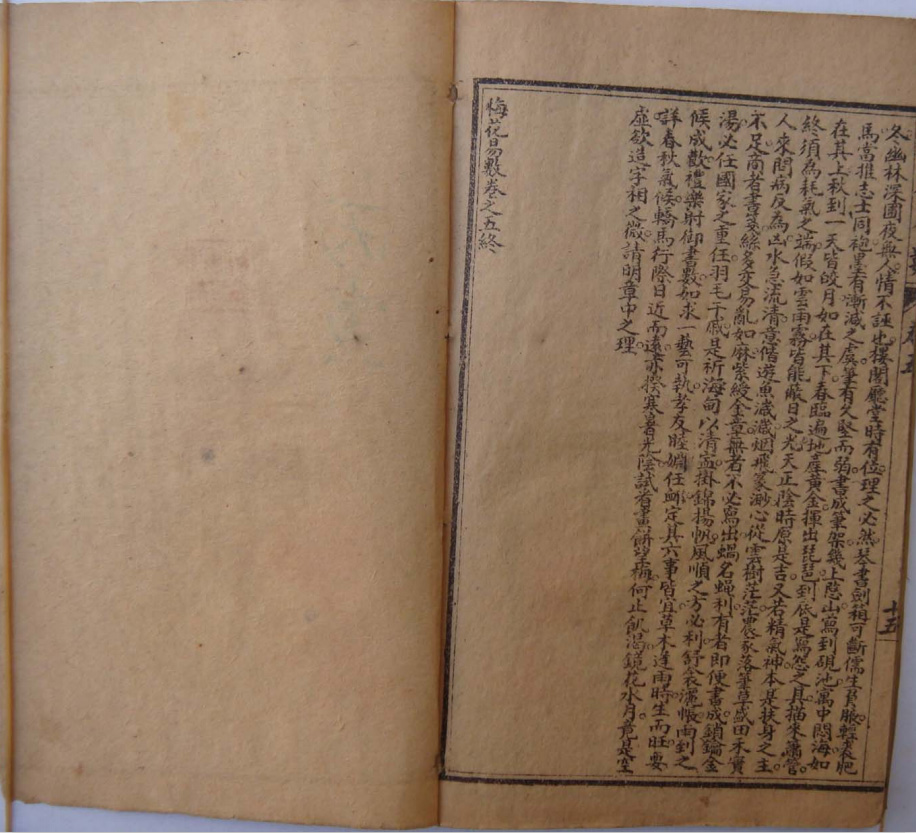 冬幽林深圃夜無人情不誣也樓閣廳堂時有位理之必然琴書劍箱可斷儒生負脤輕裘肥
馬當推志士同袍墨有漸減之虞筆有久堅而弱書成筆架幾上惒山寫到硯池寓中悶海如
在其上秋到一天皆皎月如在其下春臨遍地產黃金揮出琵琶到底是寫怨之具描來簫管
終須為耗氣之端假如雲雨霧皆能蔽日之光天正陰時原是吉又若精氣神本是扶身之主
人來問病反為凶水急流清意偕遊魚濊濊烟飛篆渺心從雲樹茫茫農家落筆草盛田禾實
不足商者書箋絲多交易亂如麻紫綬金章無者不必寫出蝸名蠅利有者即便書成鎖鑰金
湯必任國家之重任羽毛干戚是祈海甸以清寍掛錦揚帆風順之方必利舒衾灑帳雨到之
候成歡禮樂射御書數如求一藝可執孝友睦婣任卹定其六事皆宜草木逢雨時生而旺要
詳春秋氣候轎馬行際日近而遠亦揆寒暑光陰試看畫餅望梅何止飢渴鏡花水月竟是空
虛欲造字相之微請明章中之理
梅花易數卷之五終
卷五
十五